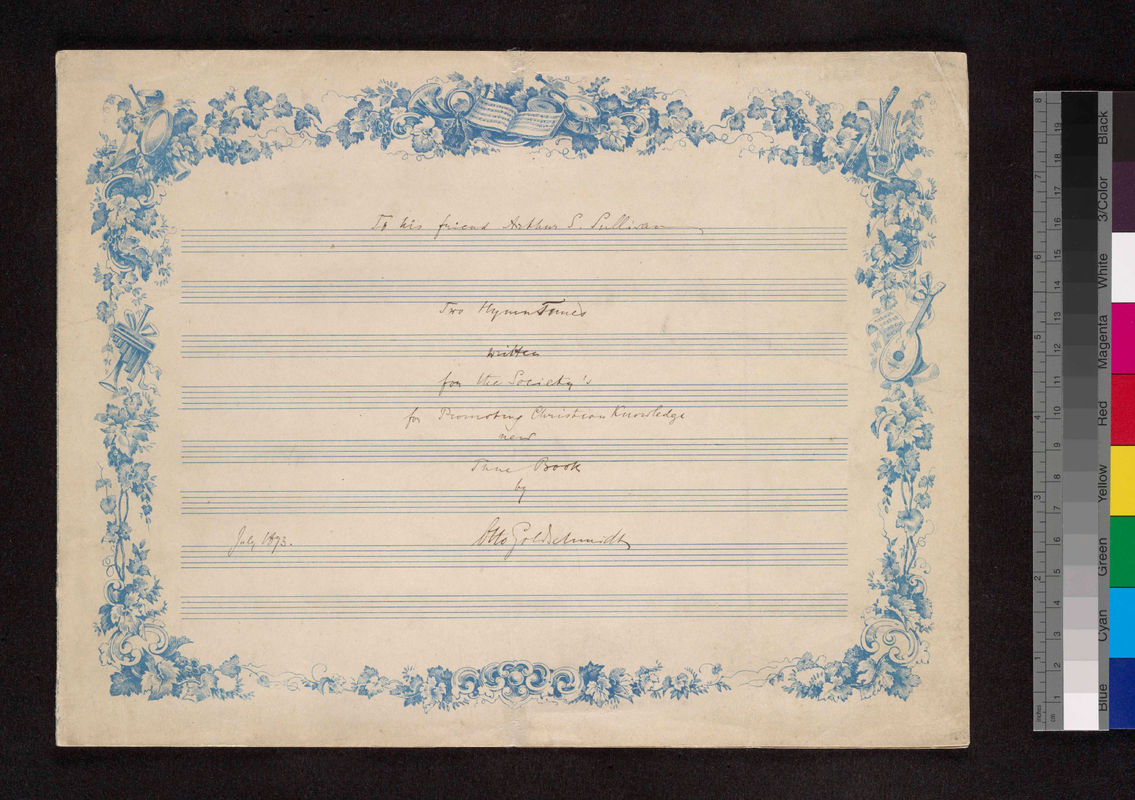 To his friend Arthur S. Sullivan
Two Hymn Tunes
written
for the Society's
for Promoting Christian Knowledge
new
Tune Book
by
July 1873.
Otto Goldschmidt
8
7
6
5
4
3
2
1
inches
19
18
17
16
15
14
13
12
11
10
9
8
7
6
5
4
3
2
1
cm
Black
3/Color
White
Magenta
Red
Yellow
Green
Cyan
Blue